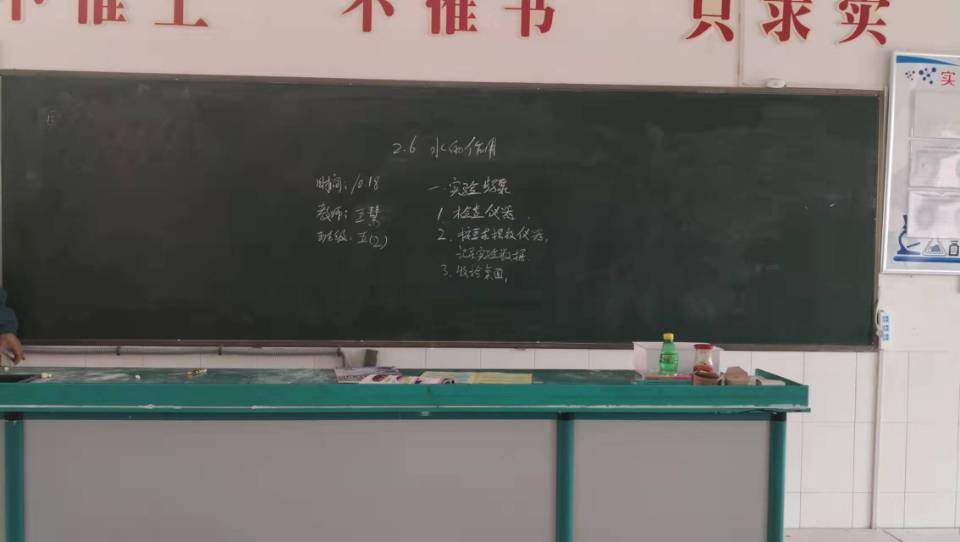 不唯上 不唯书 只求实
实
2.6 水的作用
时间：10.18 一.实验步骤
教师：王慧 1.检查仪器.
班级：五(2) 2.按要求摆放仪器,
记录实验数据
3.收拾桌面,